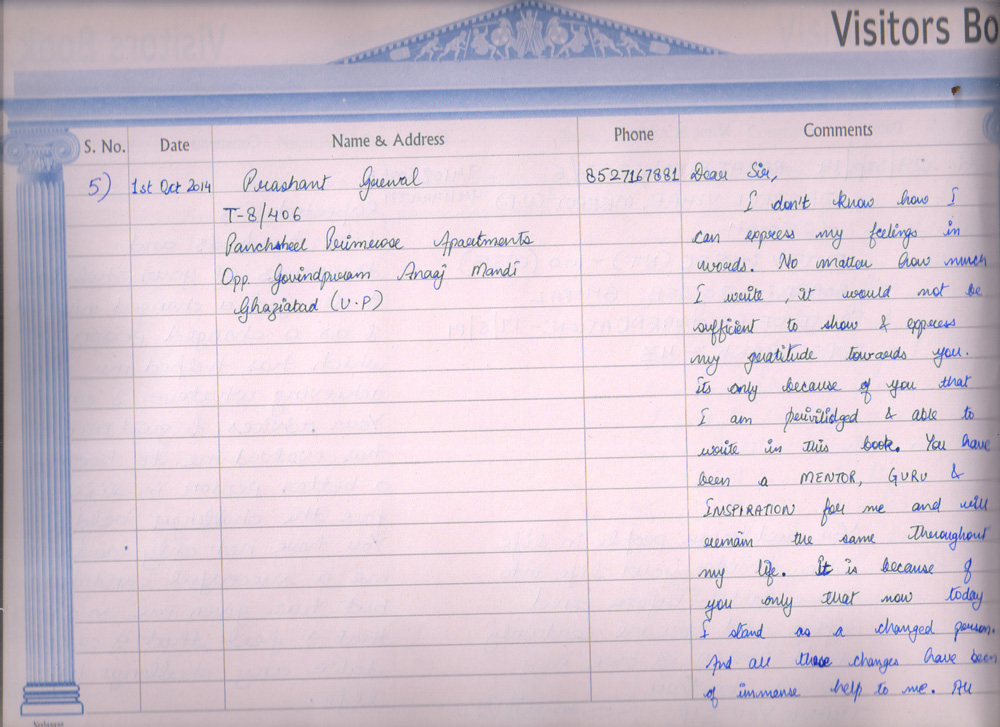 Visitors Bo
S. No. Date Name & Address Phone Comments
5) 1st Oct 2014 Prashant Grewal 8527167881 Dear Sir,
T-8/406 I don't know how I
Panchsheel Primrose Apartments can express my feelings in
Opp. Govindpuram Anaaj Mandi words. No matter how much
Ghaziabad (U.P) I write, it would not be
sufficient to show & express
my gratitude towards you.
Its only because of you that
I am privilidged & able to
write in this book. You have
been a MENTOR, GURU &
INSPIRATION for me and will
remain the same throughout
my life. It is because of
you only that now today
I stand as a changed person.
And all these changes have been
of immense help to me. All